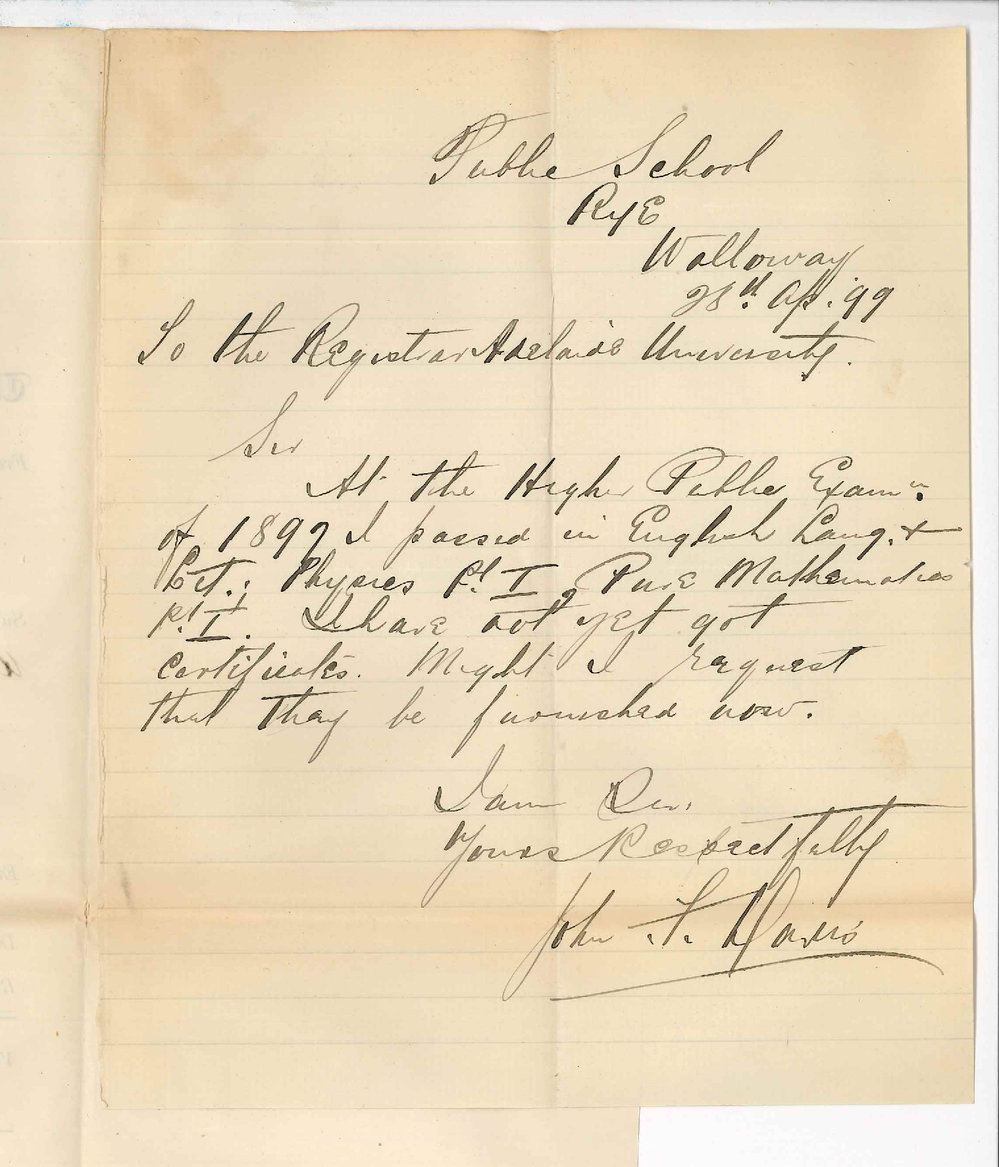 Public School
Rye
Walloway
28th Ap. '99
To the Registrar Adelaide University.
Sir
At the Higher Public Examn:
of 1897 I passed in English Lang. &
Lit.; Physics Pt I, Pure Mathematics
Pt I. I have not yet got
certificates. Might I request
that they be furnished now.
I am Sir.
Yours Respectfully
John F. Davis